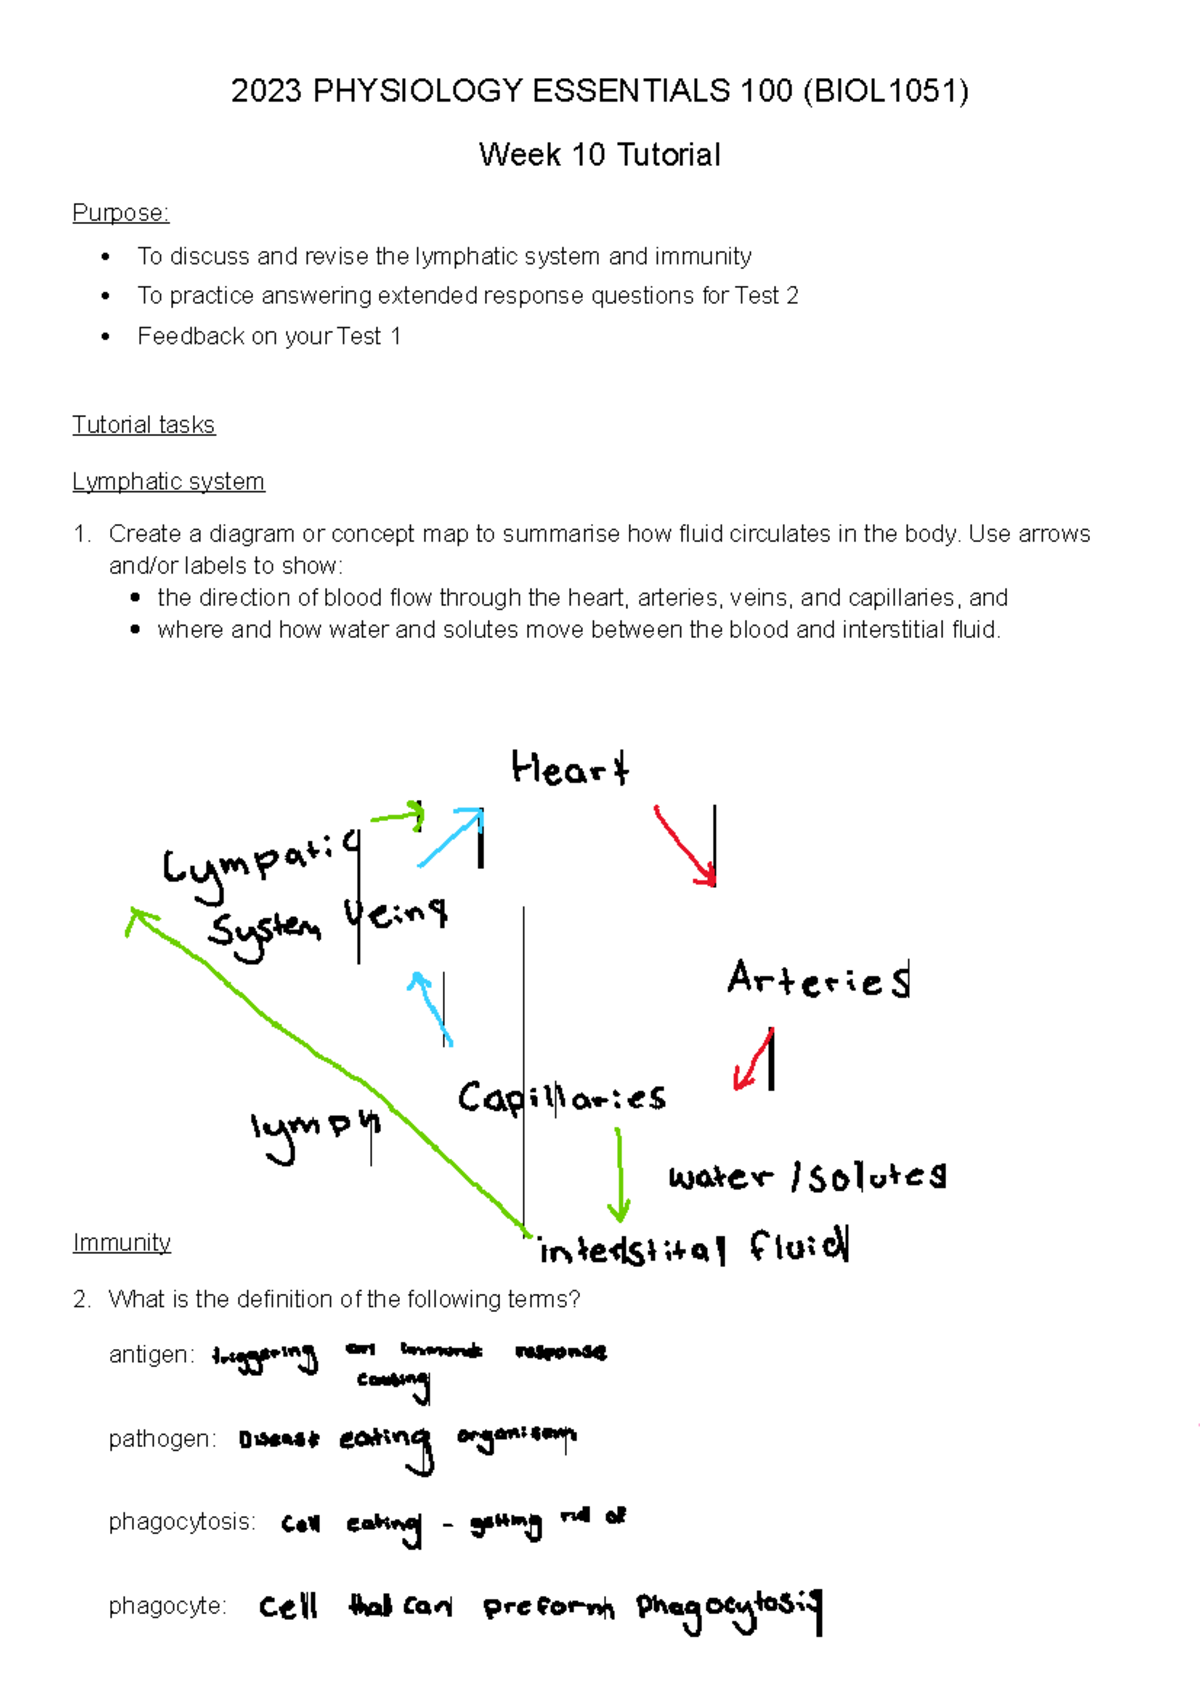 2023 PHYSIOLOGY ESSENTIALS 100 (BIOL1051)
Week 10 Tutorial
Purpose:
• To discuss and revise the lymphatic system and immunity
• To practice answering extended response questions for Test 2
• Feedback on your Test 1
Tutorial tasks
Lymphatic system
1. Create a diagram or concept map to summarise how fluid circulates in the body. Use arrows
and/or labels to show:
• the direction of blood flow through the heart, arteries, veins, and capillaries, and
• where and how water and solutes move between the blood and interstitial fluid.
Heart
Lympatic
System Veins
Arteries
Capillaries
lymph
water / solutes
Immunity
interstital fluid
2. What is the definition of the following terms?
antigen: triggering an immune response
causing
pathogen: Disease eating organisem
phagocytosis: Cell eating - getting rid of
phagocyte: Cell that can preform phagocytosis